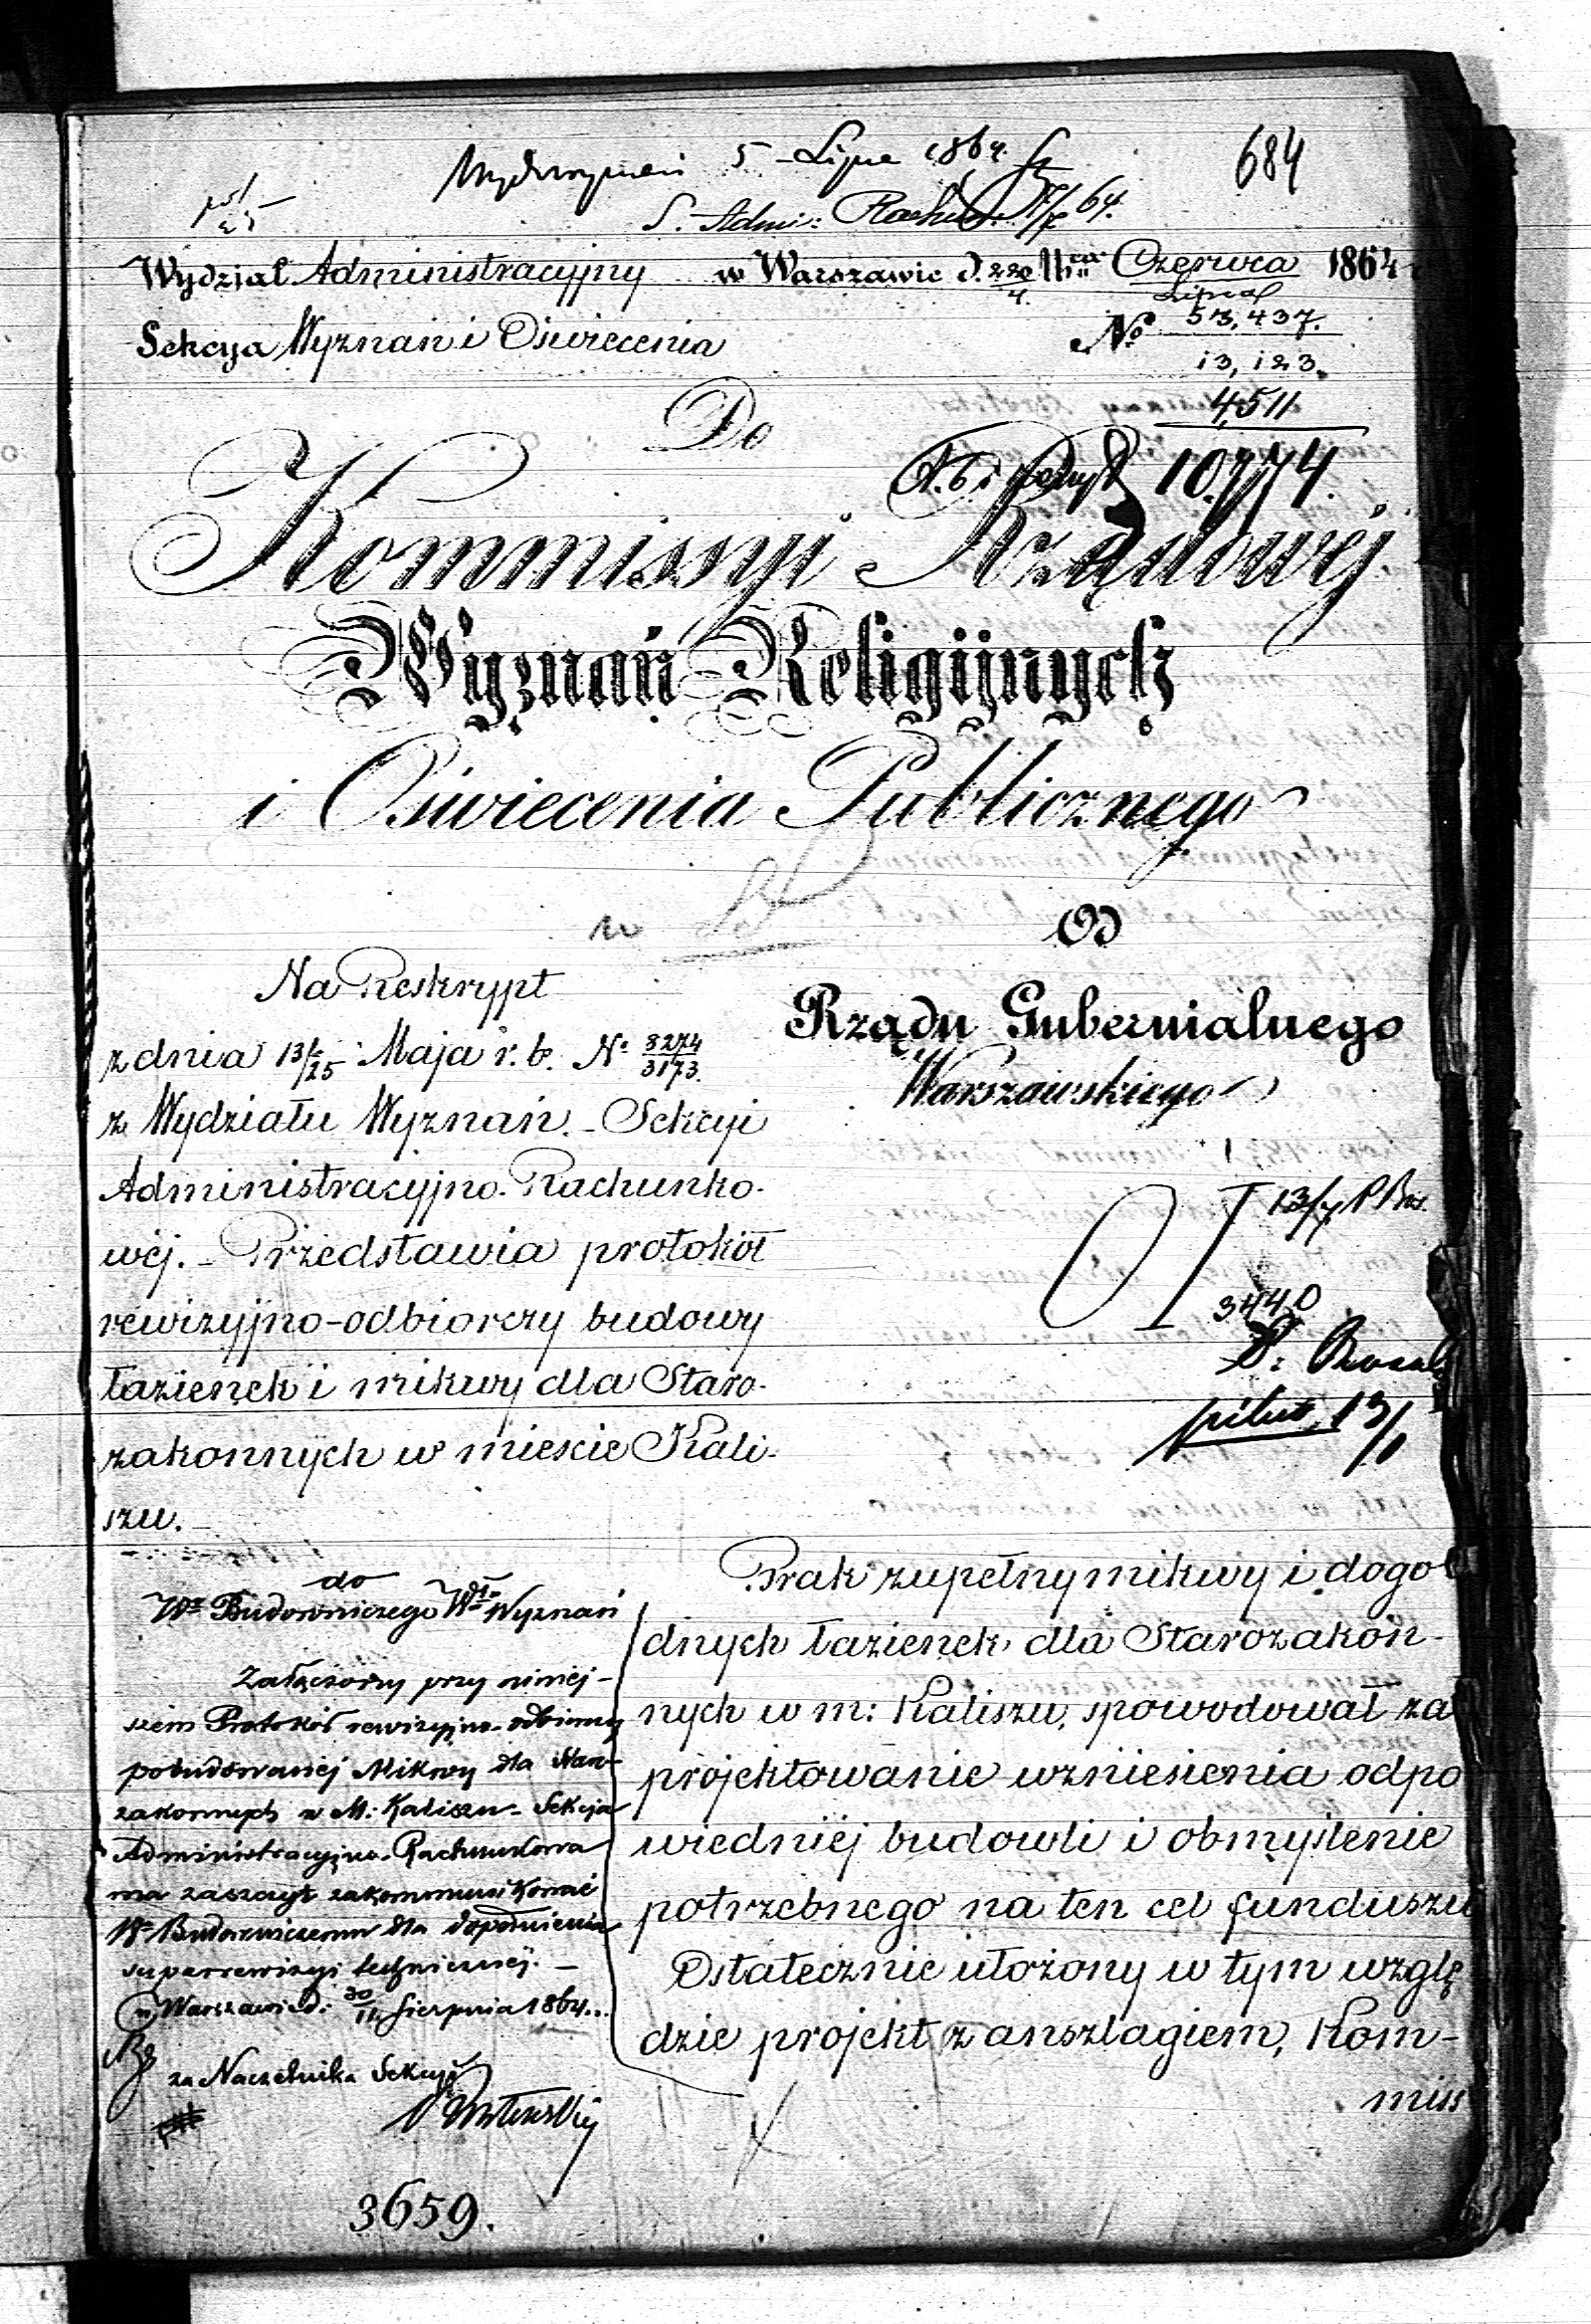 5 Lipca 1864.
684
S. Admi: Rachun. 64.
Wydział Administracyjny w Warszawie d. 22/4 Czerwca/Lipca 1864 r.
Sekcya Wyznań i Oświecenia
No 53,437.
13,123.
4511
Do
10,774.
Kommissyi Rządowéj
Wyznań Religijnych
i Oświecenia Publicznego
Od
Rządu Gubernialnego
Warszawskiego
Na Reskrypt
z dnia 13/25 Maja r. b. No 8274/3173.
z Wydziału Wyznań. - Sekcyi
Administracyjno-Rachunko-
wéj. - Przedstawia protokół
rewizyjno-odbiorczy budowy
łazienek i mikwy dla Staro-
zakonnych w mieście Kali-
szu. -
13/7
3440
pilno 13/
do
Wo Budowniczego Wału Wyznań
Załączony przy niniej-
szem Protokół rewizyjno-odbiorczy
pobudowanéj Mikwy dla Staro-
zakonnych w M: Kaliszu - Sekcja
Administracyjno-Rachunkowa
ma zaszczyt zakommunikować
Wu Budowniczemu dla dopełnienia
superrewizyi technicznéj. -
w Warszawie d: 30/11 Sierpnia 1864...
za Naczelnika Sekcyi
3659.
Brak zupełny mikwy i dogo
dnych łazienek dla Starozakon-
nych w m: Kaliszu, spowodował za
projektowanie wzniesienia odpo
wiedniéj budowli i obmyślenie
potrzebnego na ten cel funduszu
Ostatecznie ułożony w tym wzglę
dzie projekt z anszlagiem, Kom-
miss